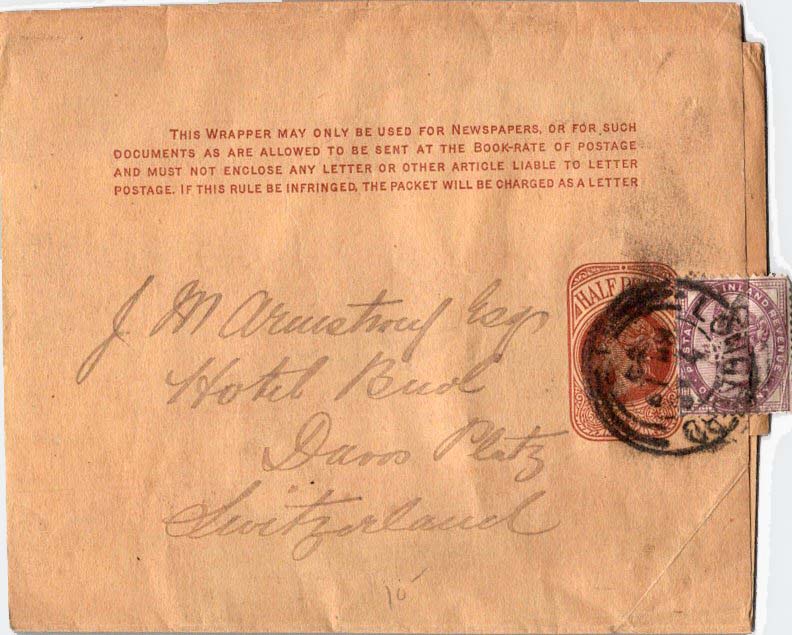 THIS WRAPPER MAY ONLY BE USED FOR NEWSPAPERS, OR FOR SUCH
DOCUMENTS AS ARE ALLOWED TO BE SENT AT THE BOOK-RATE OF POSTAGE
AND MUST NOT ENCLOSE ANY LETTER OR OTHER ARTICLE LIABLE TO LETTER
POSTAGE. IF THIS RULE BE INFRINGED, THE PACKET WILL BE CHARGED AS A LETTER
HALF
INLAND REVENUE
J M Armstrong Esq
Hotel Buol
Davos Platz
Switzerland
10